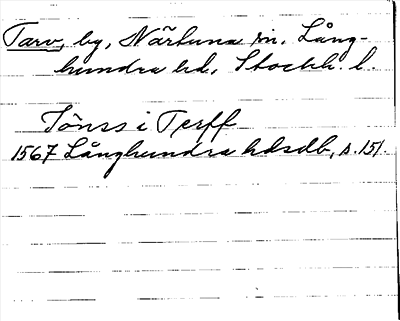 Tarv, by, Närtuna sn. Lång-
hundra hd. Stockh. l.
Jönss i Terff
1567 Långhundra hdsdb, s. 151.